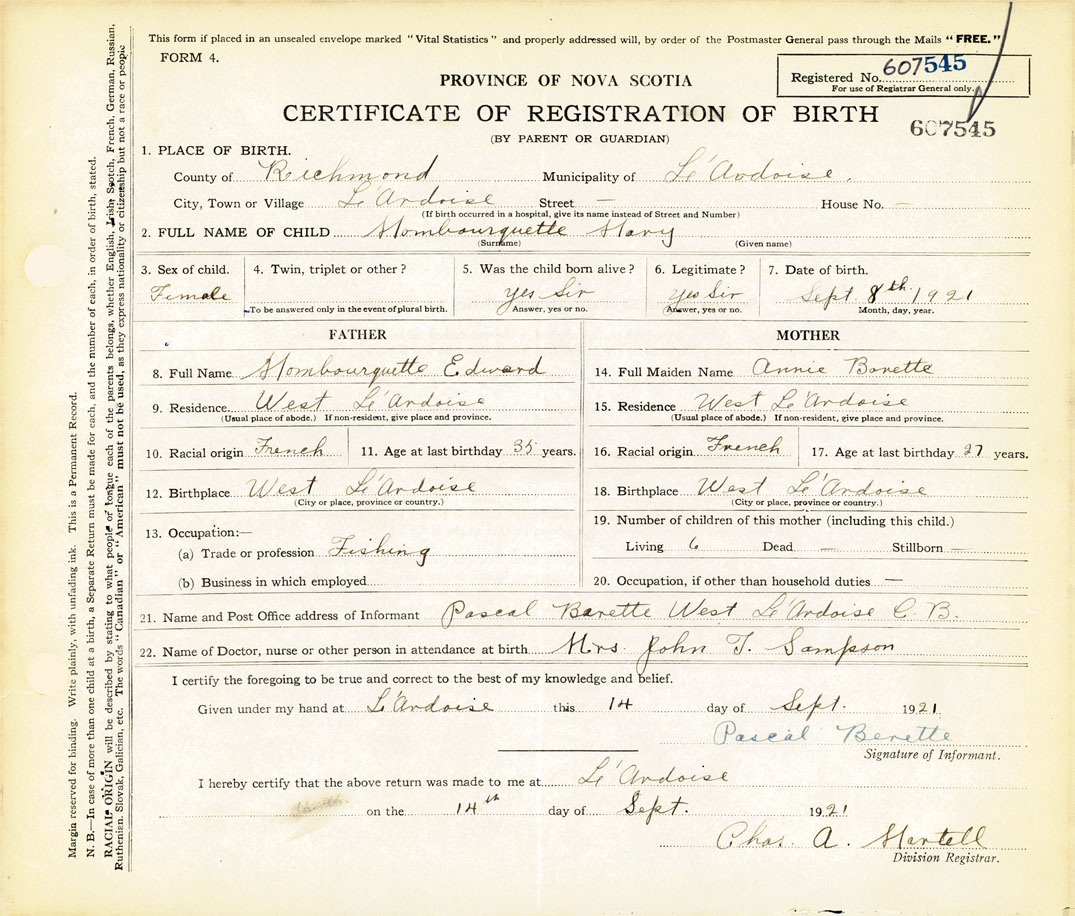 This form if placed in an unsealed envelope marked "Vital Statistics" and properly addressed will, by order of the Postmaster General pass through the Mails "FREE."
FORM 4.
Registered No. 607545
For use of Registrar General only.
PROVINCE OF NOVA SCOTIA
CERTIFICATE OF REGISTRATION OF BIRTH
607545
(BY PARENT OR GUARDIAN)
1. PLACE OF BIRTH.
County of Richmond Municipality of L'Ardoise.
City, Town or Village L'Ardoise Street — House No. —
(If birth occurred in a hospital, give its name instead of Street and Number)
2. FULL NAME OF CHILD Mombourquette Mary
(Surname) (Given name)
3. Sex of child. 4. Twin, triplet or other? 5. Was the child born alive? 6. Legitimate? 7. Date of birth.
Female yes Sir yes Sir Sept. 8th 1921
To be answered only in the event of plural birth. Answer, yes or no. Answer, yes or no. Month, day, year.
FATHER
8. Full Name Mombourquette Edward
9. Residence West L'Ardoise
(Usual place of abode.) If non-resident, give place and province.
10. Racial origin French 11. Age at last birthday 35 years.
12. Birthplace West L'Ardoise
(City or place, province or country.)
13. Occupation:—
(a) Trade or profession Fishing
(b) Business in which employed
MOTHER
14. Full Maiden Name Annie Barette
15. Residence West L'Ardoise
(Usual place of abode.) If non-resident, give place and province.
16. Racial origin French 17. Age at last birthday 27 years.
18. Birthplace West L'Ardoise
(City or place, province or country.)
19. Number of children of this mother (including this child.)
Living 6 Dead — Stillborn —
20. Occupation, if other than household duties —
21. Name and Post Office address of Informant Pascal Barette West L'Ardoise C. B.
22. Name of Doctor, nurse or other person in attendance at birth Mrs. John T. Sampson
I certify the foregoing to be true and correct to the best of my knowledge and belief.
Given under my hand at L'Ardoise this 14 day of Sept. 1921.
Pascal Berette
Signature of Informant.
I hereby certify that the above return was made to me at L'Ardoise
on the 14th day of Sept. 1921
Chas. A. Martell
Division Registrar.
Margin reserved for binding. Write plainly, with unfading ink. This is a Permanent Record.
N. B.—In case of more than one child at a birth, a Separate Return must be made for each, and the number of each, in order of birth, stated.
RACIAL ORIGIN will be described by stating to what people or tongue each of the parents belongs, whether English, Irish, Scotch, French, German, Russian,
Ruthenian, Slovak, Galician, etc. The words "Canadian" or "American" must not be used, as they express nationality or citizenship but not a race or people